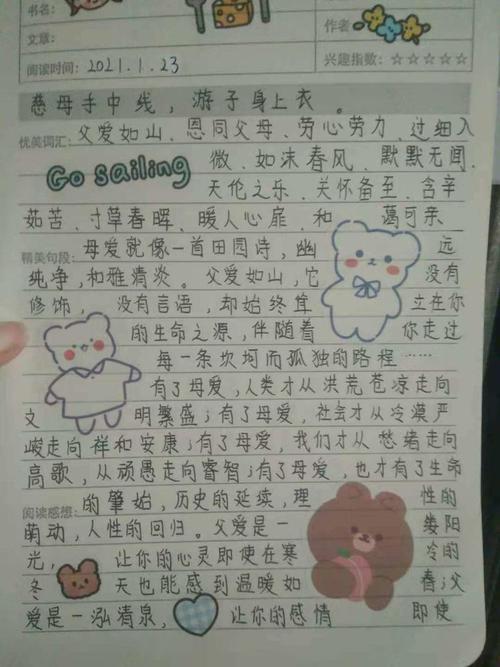 书名:
文章:
作者
阅读时间: 2021.1.23
兴趣指数: ☆☆☆☆☆
慈母手中线，游子身上衣。
优美词汇: 父爱如山、恩同父母、劳心劳力、过细入
Go sailing
微、如沫春风、默默无闻、
天伦之乐、关怀备至、含辛
茹苦、寸草春晖、暖人心扉、和蔼可亲
精美句段: 母爱就像一首田园诗，幽远
纯净，和雅清炎。父爱如山，它没有
修饰，没有言语，却始终耸立在你
的生命之源，伴随着你走过
每一条坎坷而孤独的路程……
有了母爱，人类才从洪荒苍凉走向
文明繁盛；有了母爱，社会才从冷漠严
峻走向祥和安康；有了母爱，我们才从愁绪走向
高歌，从顽愚走向睿智；有了母爱，也才有了生命
阅读感想: 的肇始，历史的延续，理性的
萌动，人性的回归。父爱是一缕阳
光，让你的心灵即使在寒冷的
冬天也能感到温暖如春；父
爱是一泓清泉，让你的感情即使